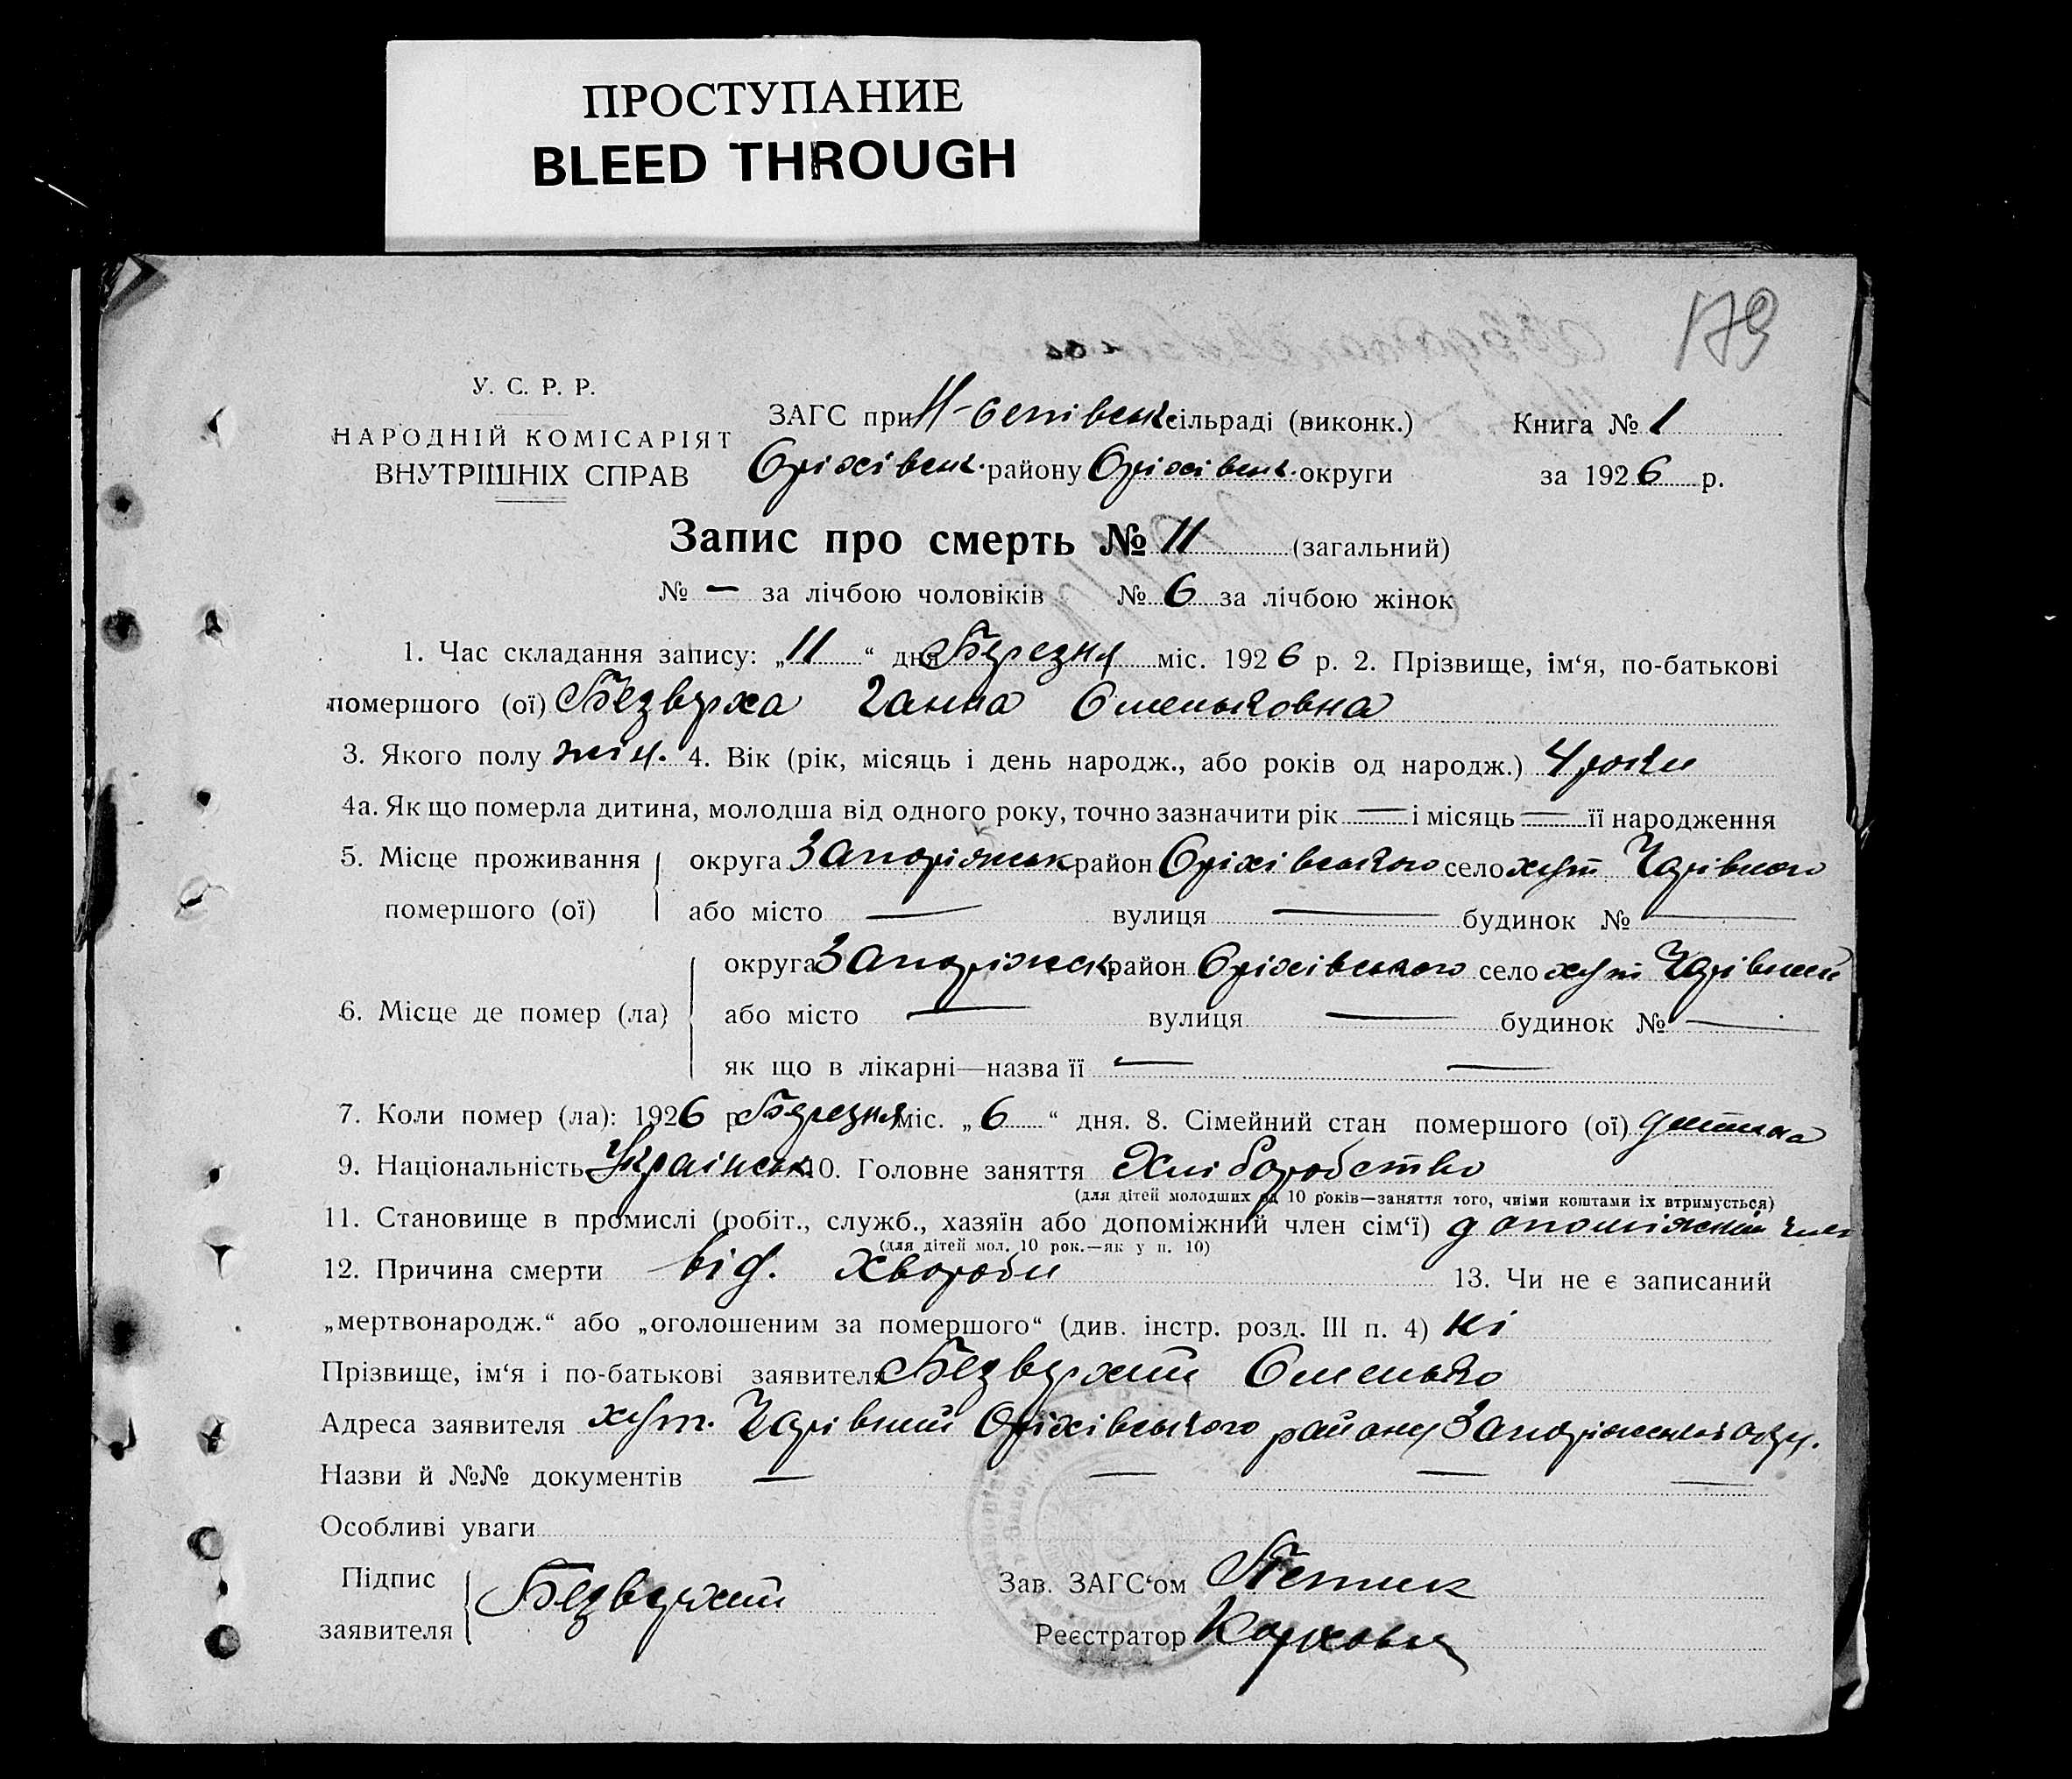 ПРОСТУПАНИЕ
BLEED THROUGH
179
У. С. Р. Р.
НАРОДНІЙ КОМІСАРІЯТ
ВНУТРІШНІХ СПРАВ
ЗАГС при сільраді (виконк.)
Книга № 1
Оріхівськ. району Оріхівськ. округи
за 1926 р.
Запис про смерть № 11 (загальний)
№ — за лічбою чоловіків № 6 за лічбою жінок
1. Час складання запису: „11“ дня Березня міс. 1926 р. 2. Прізвище, ім‘я, по-батькові
помершого (ої) Безверха Ганна Омельковна
3. Якого полу жін. 4. Вік (рік, місяць і день народж., або років од народж.) 4 роки
4а. Як що померла дитина, молодша від одного року, точно зазначити рік — і місяць — її народження
5. Місце проживання помершого (ої)
округа Запоріжськ район Оріхівського село хут Чарівного
або місто — вулиця — будинок № —
6. Місце де помер (ла)
округа Запоріжськ район Оріхівського село хут Чарівний
або місто — вулиця — будинок № —
як що в лікарні—назва її — —
7. Коли помер (ла): 1926 р. Березня міс. „6“ дня. 8. Сімейний стан помершого (ої) дитина
9. Національність Українськ 10. Головне заняття Хліборобство
(для дітей молодших од 10 років—заняття того, чиїми коштами їх втримується)
11. Становище в промислі (робіт., служб., хазяїн або допоміжний член сім‘ї) допоміжний член
(для дітей мол. 10 рок.—як у п. 10)
12. Причина смерти від. хвороби 13. Чи не є записаний
„мертвонародж.“ або „оголошеним за помершого“ (див. інстр. розд. III п. 4) ні
Прізвище, ім‘я і по-батькові заявителя Безверхий Омелько
Адреса заявителя хут. Чарівний Оріхівського району Запоріжськ окру.
Назви й №№ документів — — — —
Особливі уваги
Підпис заявителя Безверхий
Зав. ЗАГС‘ом
Реєстратор